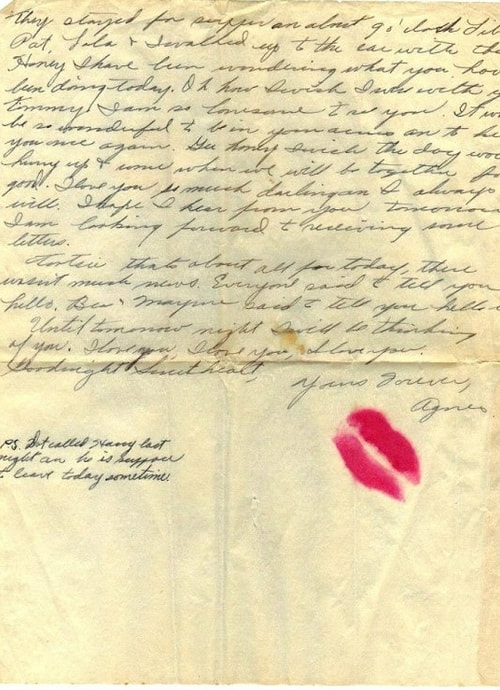 They stayed for supper an about 9 o'clock
Pat, Lila & I walked up to the car with
Honey I have been wondering what you
been doing today. Oh how I wish I was with
I am so lonesome to see you. It
be so wonderful to be in your arms an to
you once again. Gee honey I wish the day
hurry up & come when we will be together
good. I love you so much darling an I always
will. I hope I hear from you tomorrow
I am looking forward to receiving some
letters.
thats about all for today, there
wasn't much news. Everyone said to tell you
hello. Bea & said to tell you hello
Until tomorrow night I will be thinking
of you. I love you, I love you, I love you.
Goodnight Sweetheart,
Yours Forever,
Agnes
PS. Dot called Harry last
night an he is suppose
to leave today sometime.